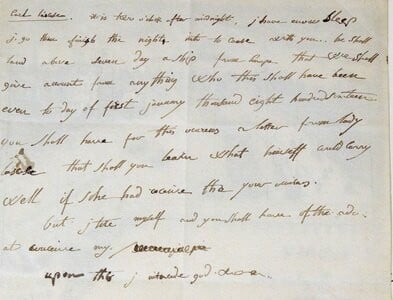 is two o'clock after midnight, j have enow sleep
j go then finish the night into cause with you.. he shall
land above seven day a ship from Europe that we shall
give account from anything who this shall have been
even to day of first january thousand eight hundred sixteen
you shall have for this ocurens a letter from lady
that shall you learn what himself could carry
well if she had conceive the your ocurens.
but j tire myself and you shall have of the ado.
at conceive my
upon this j god